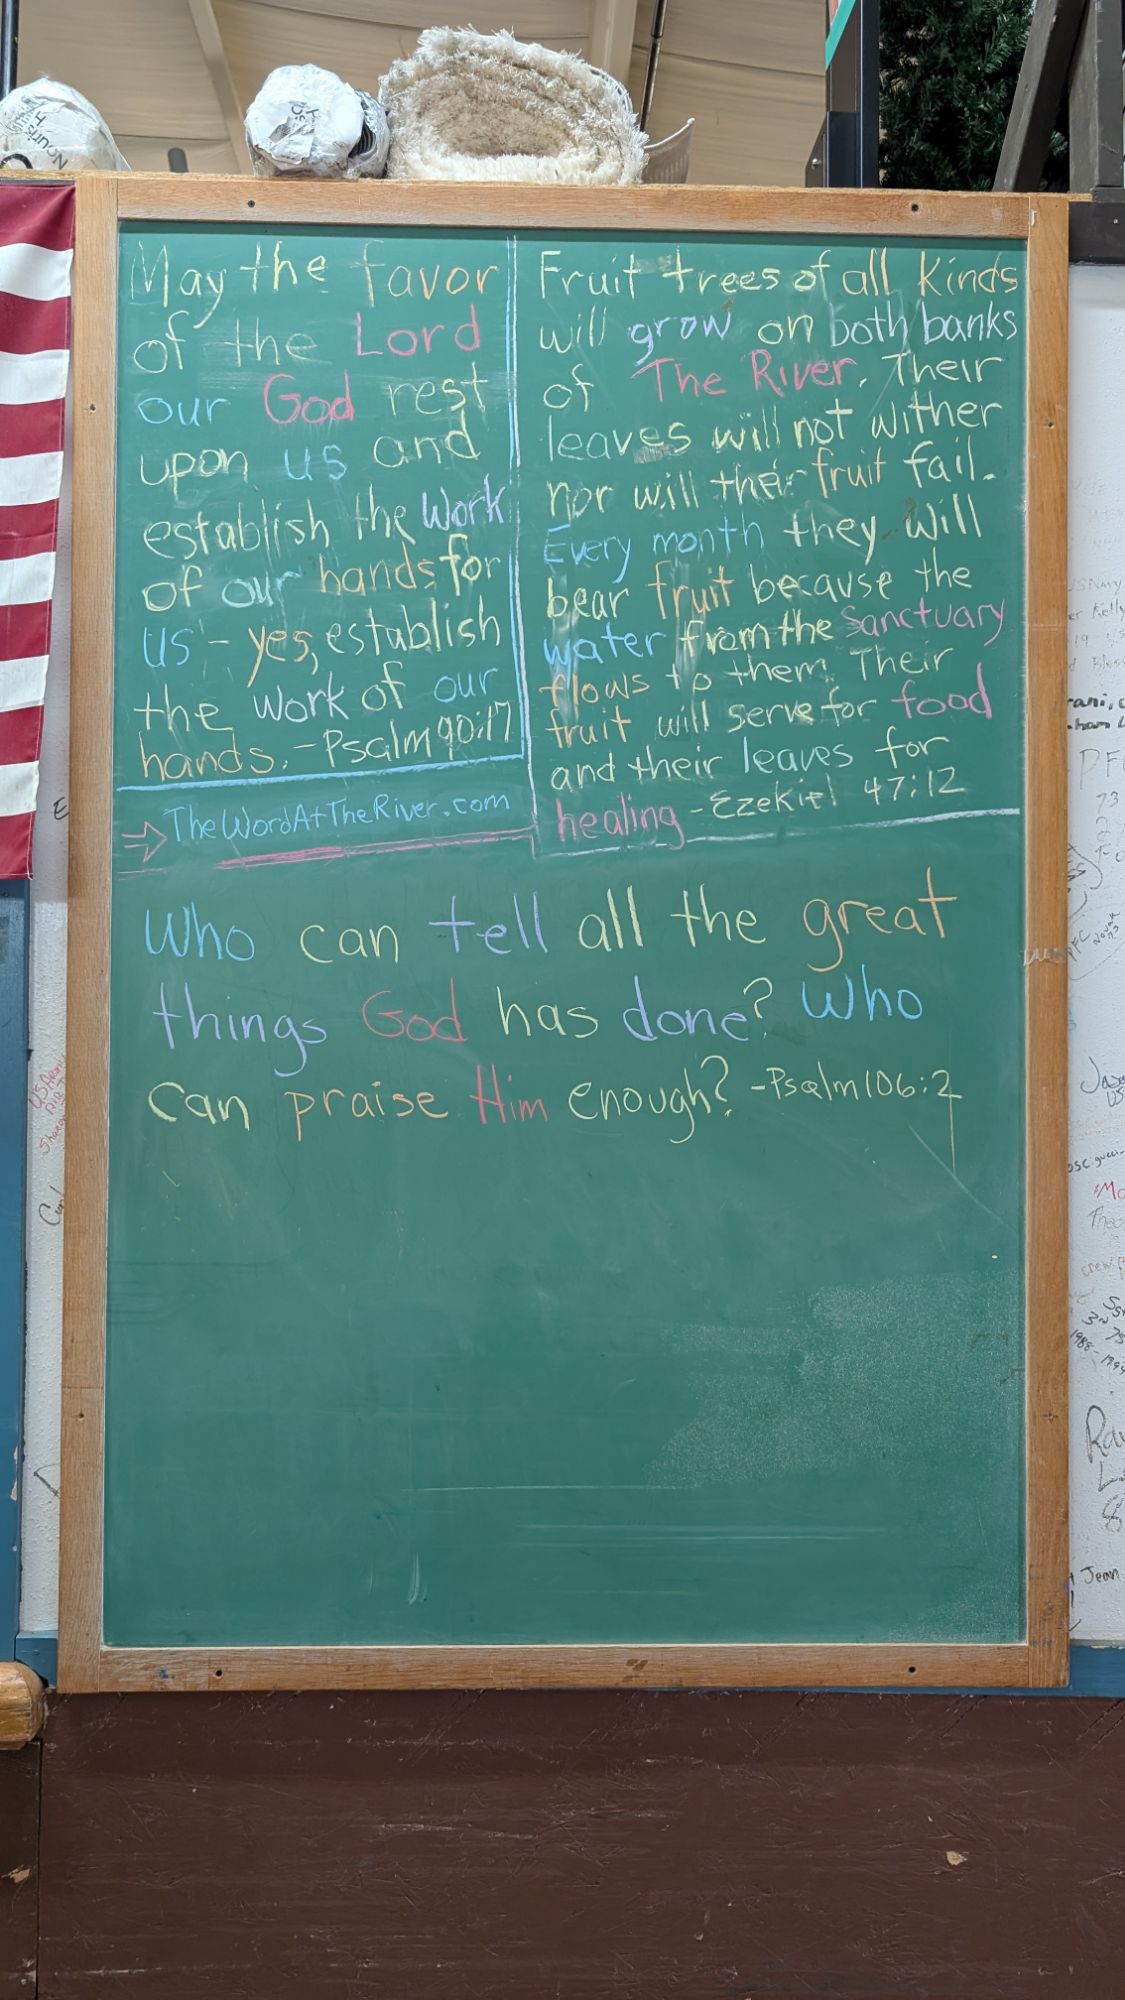 May the favor
of the Lord
our God rest
upon us and
establish the work
of our hands for
us - yes, establish
the work of our
hands. - Psalm 90:17
TheWordAtTheRiver.com
Fruit trees of all kinds
will grow on both banks
of The River. Their
leaves will not wither
nor will their fruit fail.
Every month they will
bear fruit because the
water from the Sanctuary
flows to them. Their
fruit will serve for food
and their leaves for
healing - Ezekiel 47:12
Who can tell all the great
things God has done? Who
can praise Him enough? - Psalm 106:2
Jean